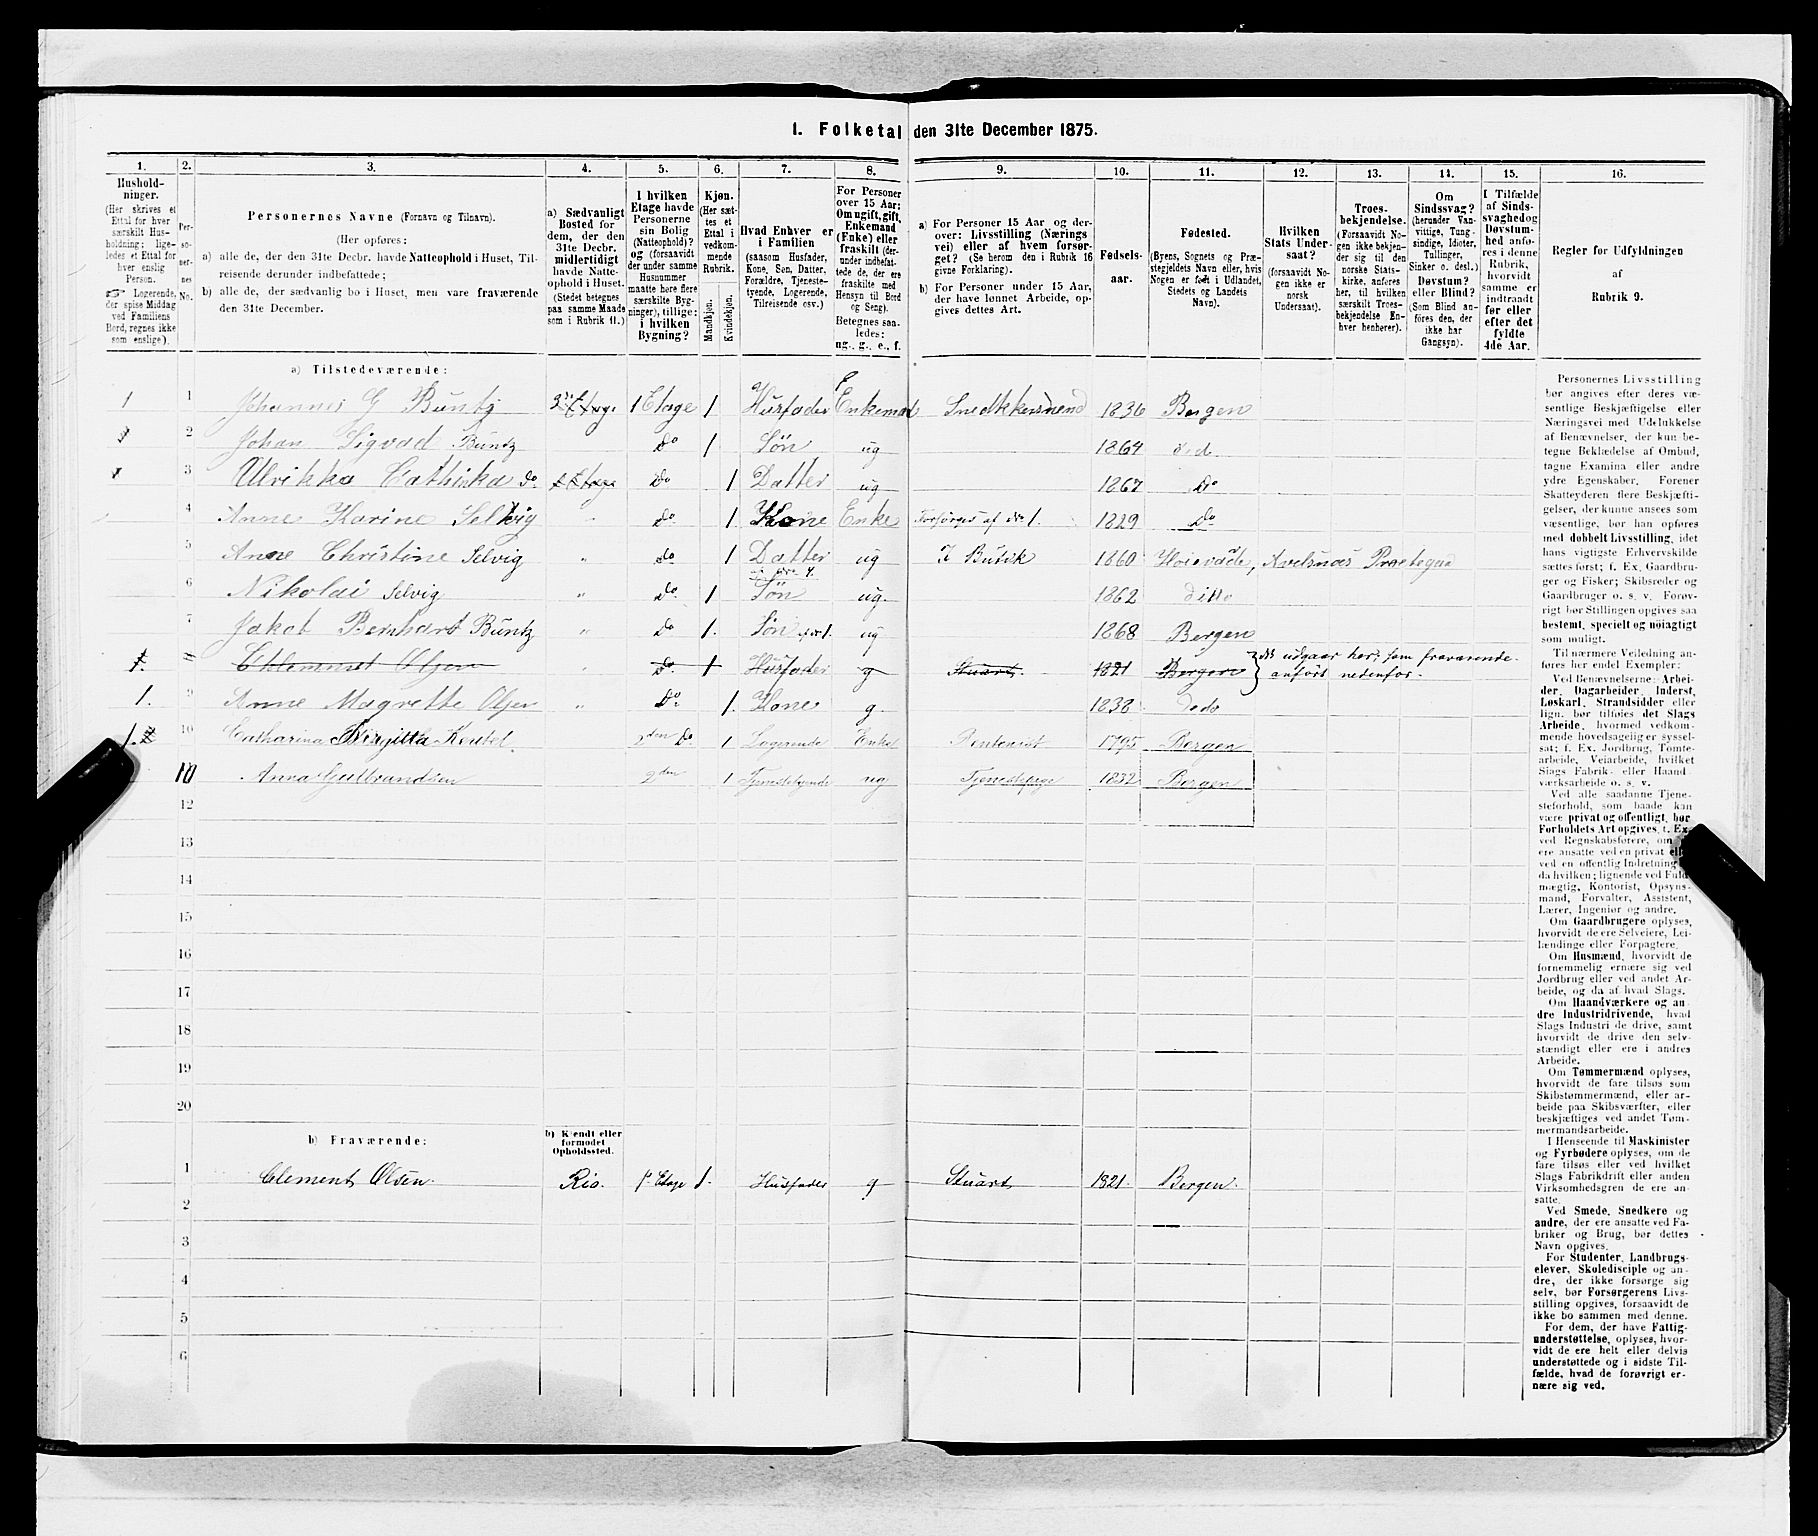 1. Folketal den 31te December 1875.
1. 2. 3. 4. 5. 6. 7. 8. 9. 10. 11. 12. 13. 14. 15. 16.
Hushold-
ninger.
(Her skrives et
Ettal for hver
særskilt Hus-
holdning; lige-
ledes et Ettal for
hver enslig
Person.
☞ Logerende,
der spise Middag
ved Familiens
Bord, regnes ikke
som enslige).
Per-
so-
ner-
nes
No.
Personernes Navne (Fornavn og Tilnavn).
(Her opføres:
a) alle de, der den 31te Decbr. havde Natteophold i Huset, Til-
reisende derunder indbefattede;
b) alle de, der sædvanlig bo i Huset, men vare fraværende
den 31te December.
a) Sædvanligt
Bosted for
dem, der den
31te Decbr.
midlertidigt
havde Natte-
ophold i Huset.
(Stedet betegnes
paa samme Maade
som i Rubrik 11.)
I hvilken
Etage havde
Personerne
sin Bolig
(Natteophold)?
og (forsaavidt
der under samme
Husnummer
maatte høre flere
særskilte Byg-
ninger), tillige:
i hvilken
Bygning?
Kjøn.
(Her sæt-
tes et
Ettal i
vedkom-
mende
Rubrik.
Mandkjøn.
Kvindekjøn.
Hvad Enhver er
i Familien
(saasom Husfader,
Kone, Søn, Datter,
Forældre, Tjeneste-
tyende, Logerende,
Tilreisende osv.)
For Personer
over 15 Aar:
Om ugift, gift,
Enkemand
(Enke) eller
fraskilt (der-
under indbefat-
tede de, der ere
fraskilte med
Hensyn til Bord
og Seng).
Betegnes saa-
ledes:
ug., g., e., f.
a) For Personer 15 Aar og der-
over: Livsstilling (Nærings
vei) eller af hvem forsør-
get? (Se herom den i Rubrik 16
givne Forklaring).
b) For Personer under 15 Aar,
der have lønnet Arbeide, op-
gives dettes Art.
Fødsels-
aar.
Fødested.
(Byens, Sognets og Præ-
stegjeldets Navn eller, hvis
Nogen er født i Udlandet,
Stedets og Landets
Navn).
Hvilken
Stats Under-
saat?
(forsaavidt No-
gen ikke er
norsk
Undersaat).
Troes-
bekjendelse.
(Forsaavidt No-
gen ikke bekjen-
der sig til den
norske Stats-
kirke, anføres
her, til hvilken
særskilt Troes-
bekjendelse En-
hver henhører).
Om
Sindssvag?
(herunder Van-
vittige, Tung-
sindige, Idioter,
Tullinger,
Sinker o. desl.)
Døvstum?
eller Blind?
(Som Blind an-
føres den, der
ikke har
Gangsyn).
I Tilfælde
af Sinds-
svaghed og
Døvstum-
hed anfø-
res i denne
Rubrik,
hvorvidt
samme er
indtraadt
før eller
efter det
fyldte
4de Aar.
Regler for Udfyldningen
af
Rubrik 9.
a) Tilstedeværende:
1 1 Johannes G Buntz 2den Etage 1 Etage 1 Husfader Enkemd Snedkkersvend 1836 Bergen
2 Johan Sigvad Buntz do 1 Søn ug 1864 do
3 Ulrikka Cathinka do. Do 1 Datter ug 1867 Do
4 Anne Karine Selvig " do 1 Kone Enke Forsørges af No 1. 1829 Do
5 Anne Christine Selvig " do 1 Datter ug I Butik 1860 Hoievade, Avelsnæs Prætegjed
af No 4.
6 Nikolai Selvig " do 1 Søn ug. 1862 ditto
7 Jakob Bernhart Buntz " do 1. Søn af No 1. ug 1868 Bergen
1. Chlemmet Olsen " do. 1 Husfader g Stuart. 1821 Bergen No 8 udgaar her, som fraværende
anført nedenfor.
1. 9 Anne Magrette Olsen " do. 1. Kone g. 1838 dodo
1. 10 Catharina Birgitta Keutel. 2den do. 1 Logerende Enke Rentenist 1795 Bergen
Anna Gulbrandsen 2den 1 Tjenestetyende ug Tjenestepige 1832 Bergen
12
13
14
15
16
17
18
19
20
b) Fraværende:
b) Kjendt eller
formodet
Opholdssted.
1 Clement Olsen. Rio. 1st Etage 1. Husfader g Stuart 1821. Bergen.
2
3
4
5
6
Personernes Livsstilling
bør angives efter deres væ-
sentlige Beskjæftigelse eller
Næringsvei med Udelukkelse
af Benævnelser, der kun be-
tegne Beklædelse af Ombud,
tagne Examina eller andre
ydre Egenskaber. Forener
Skatteyderen flere Beskjæfti-
gelser, der kunne ansees som
væsentlige, bør han opføres
med dobbelt Livsstilling, idet
hans vigtigste Erhvervskilde
sættes først; f. Ex. Gaardbru-
ger og Fisker; Skibsreder og
Gaardbruger o. s. v. Forøv-
rigt bør Stillingen opgives saa
bestemt, specielt og nøiagtigt
som muligt.
Til nærmere Veiledning an-
føres her endel Exempler:
Ved Benævnelserne: Arbei-
der, Dagarbeider, Inderst,
Løskarl, Strandsidder eller
lign. bør tilføies det Slags
Arbeide, hvormed vedkom-
mende hovedsagelig er syssel-
sat; f. Ex. Jordbrug, Tomte-
arbeide, Veiarbeide, hvilket
Slags Fabrik- eller Haand-
værksarbeide o. s. v.
Ved alle saadanne Tjene-
steforhold, som baade kan
være privat og offentligt, bør
Forholdets Art opgives, f. Ex.
ved Regnskabsførere, om
ere ansatte ved en privat eller
ved en offentlig Indretning
da hvilken; lignende ved Fuld-
mægtig, Kontorist, Opsyns-
mand, Forvalter, Assistent,
Lærer, Ingeniør og andre.
Om Gaardbrugere oplyses,
hvorvidt de ere Selveiere, Lei-
lændinge eller Forpagtere.
Om Husmænd, hvorvidt de
fornemmelig ernære sig ved
Jordbrug eller ved andet Ar-
beide, og da af hvad Slags.
Om Haandværkere og an-
dre Industridrivende, hvad
Slags Industri de drive, samt
hvorvidt de drive den selv-
stændigt eller ere i andres
Arbeide.
Om Tømmermænd oplyses,
hvorvidt de fare tilsøs som
Skibstømmermænd, eller ar-
beide paa Skibsværfter, eller
beskjæftiges ved andet Tøm-
mermandsarbeide.
I Henseende til Maskinister
og Fyrbødere oplyses, om de
fare tilsøs eller ved hvilket
Slags Fabrikdrift eller anden
Virksomhedsgren de ere an-
satte.
Ved Smede, Snedkere og
andre, der ere ansatte ved Fa-
briker og Brug, bør dettes
Navn opgives.
For Studenter, Landbrugs-
elever, Skoledisciple og an-
dre, der ikke forsørge sig
selv, bør Forsørgerens Livs-
stilling opgives, forsaavidt de
ikke bo sammen med denne.
For dem, der have Fattig-
understøttelse, oplyses, hvor-
vidt de ere helt eller delvis
understøttede og i sidste Til-
fælde, hvad de forøvrigt er-
nære sig ved.